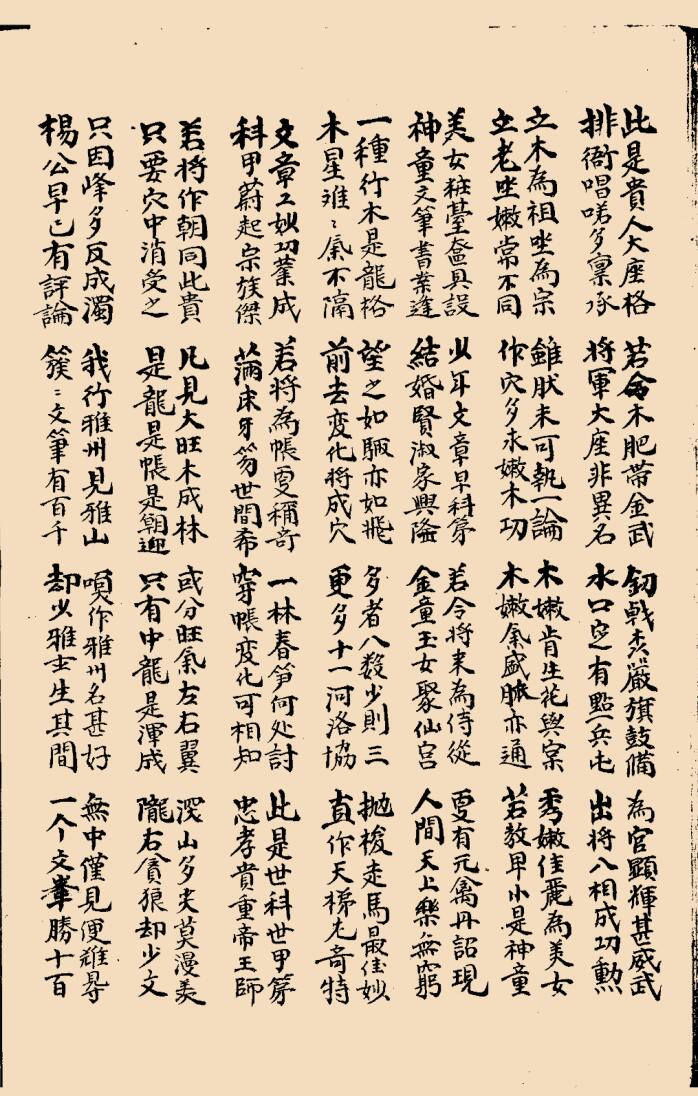 此是貴人大座格
排衙唱喏多稟承
若令木肥帶金武
将軍大座非異名
釼戟森嚴旗鼓備
水口定有點兵屯
為官顯輝甚威武
出将入相成功勲
立木為祖坐為宗
立老坐嫩常不同
雖肰未可執一論
作穴多求嫩木功
木嫩肯生花與菓
木嫩氣盛脉亦通
秀嫩佳麗為美女
若教早小是神童
美女粧臺奩具設
神童文筆書業逢
少年文章早科第
結婚賢淑家興隆
若令将来為侍從
金童玉女聚仙宮
更有元禽丹詔現
人間天上樂無窮
一種行木是龍格
木星迢々氣不隔
望之如駆亦如飛
前去変化将成穴
多者八数少則三
更多十一河洛協
抛梭走馬最佳妙
直作天梯尤奇特
文章工妙功業成
科甲蔚起宗族傑
若将為帳更稱奇
滿床牙笏世間希
一林春笋何处討
穿帳変化可相知
此是世科世甲第
忠孝貴重帝王師
若将作朝同此貴
只要穴中消受之
凡見大旺木成林
是龍是帳是朝迎
或分旺氣左右翼
只有中龍是渾成
深山多丈莫漫羙
隴右貪狼却少文
只因峰多反成濁
楊公早已有評論
我行雅州見雅山
簇々文筆有百千
嘆作雅州名甚好
却少雅士生其間
無中僅見便難尋
一个文峯勝十百